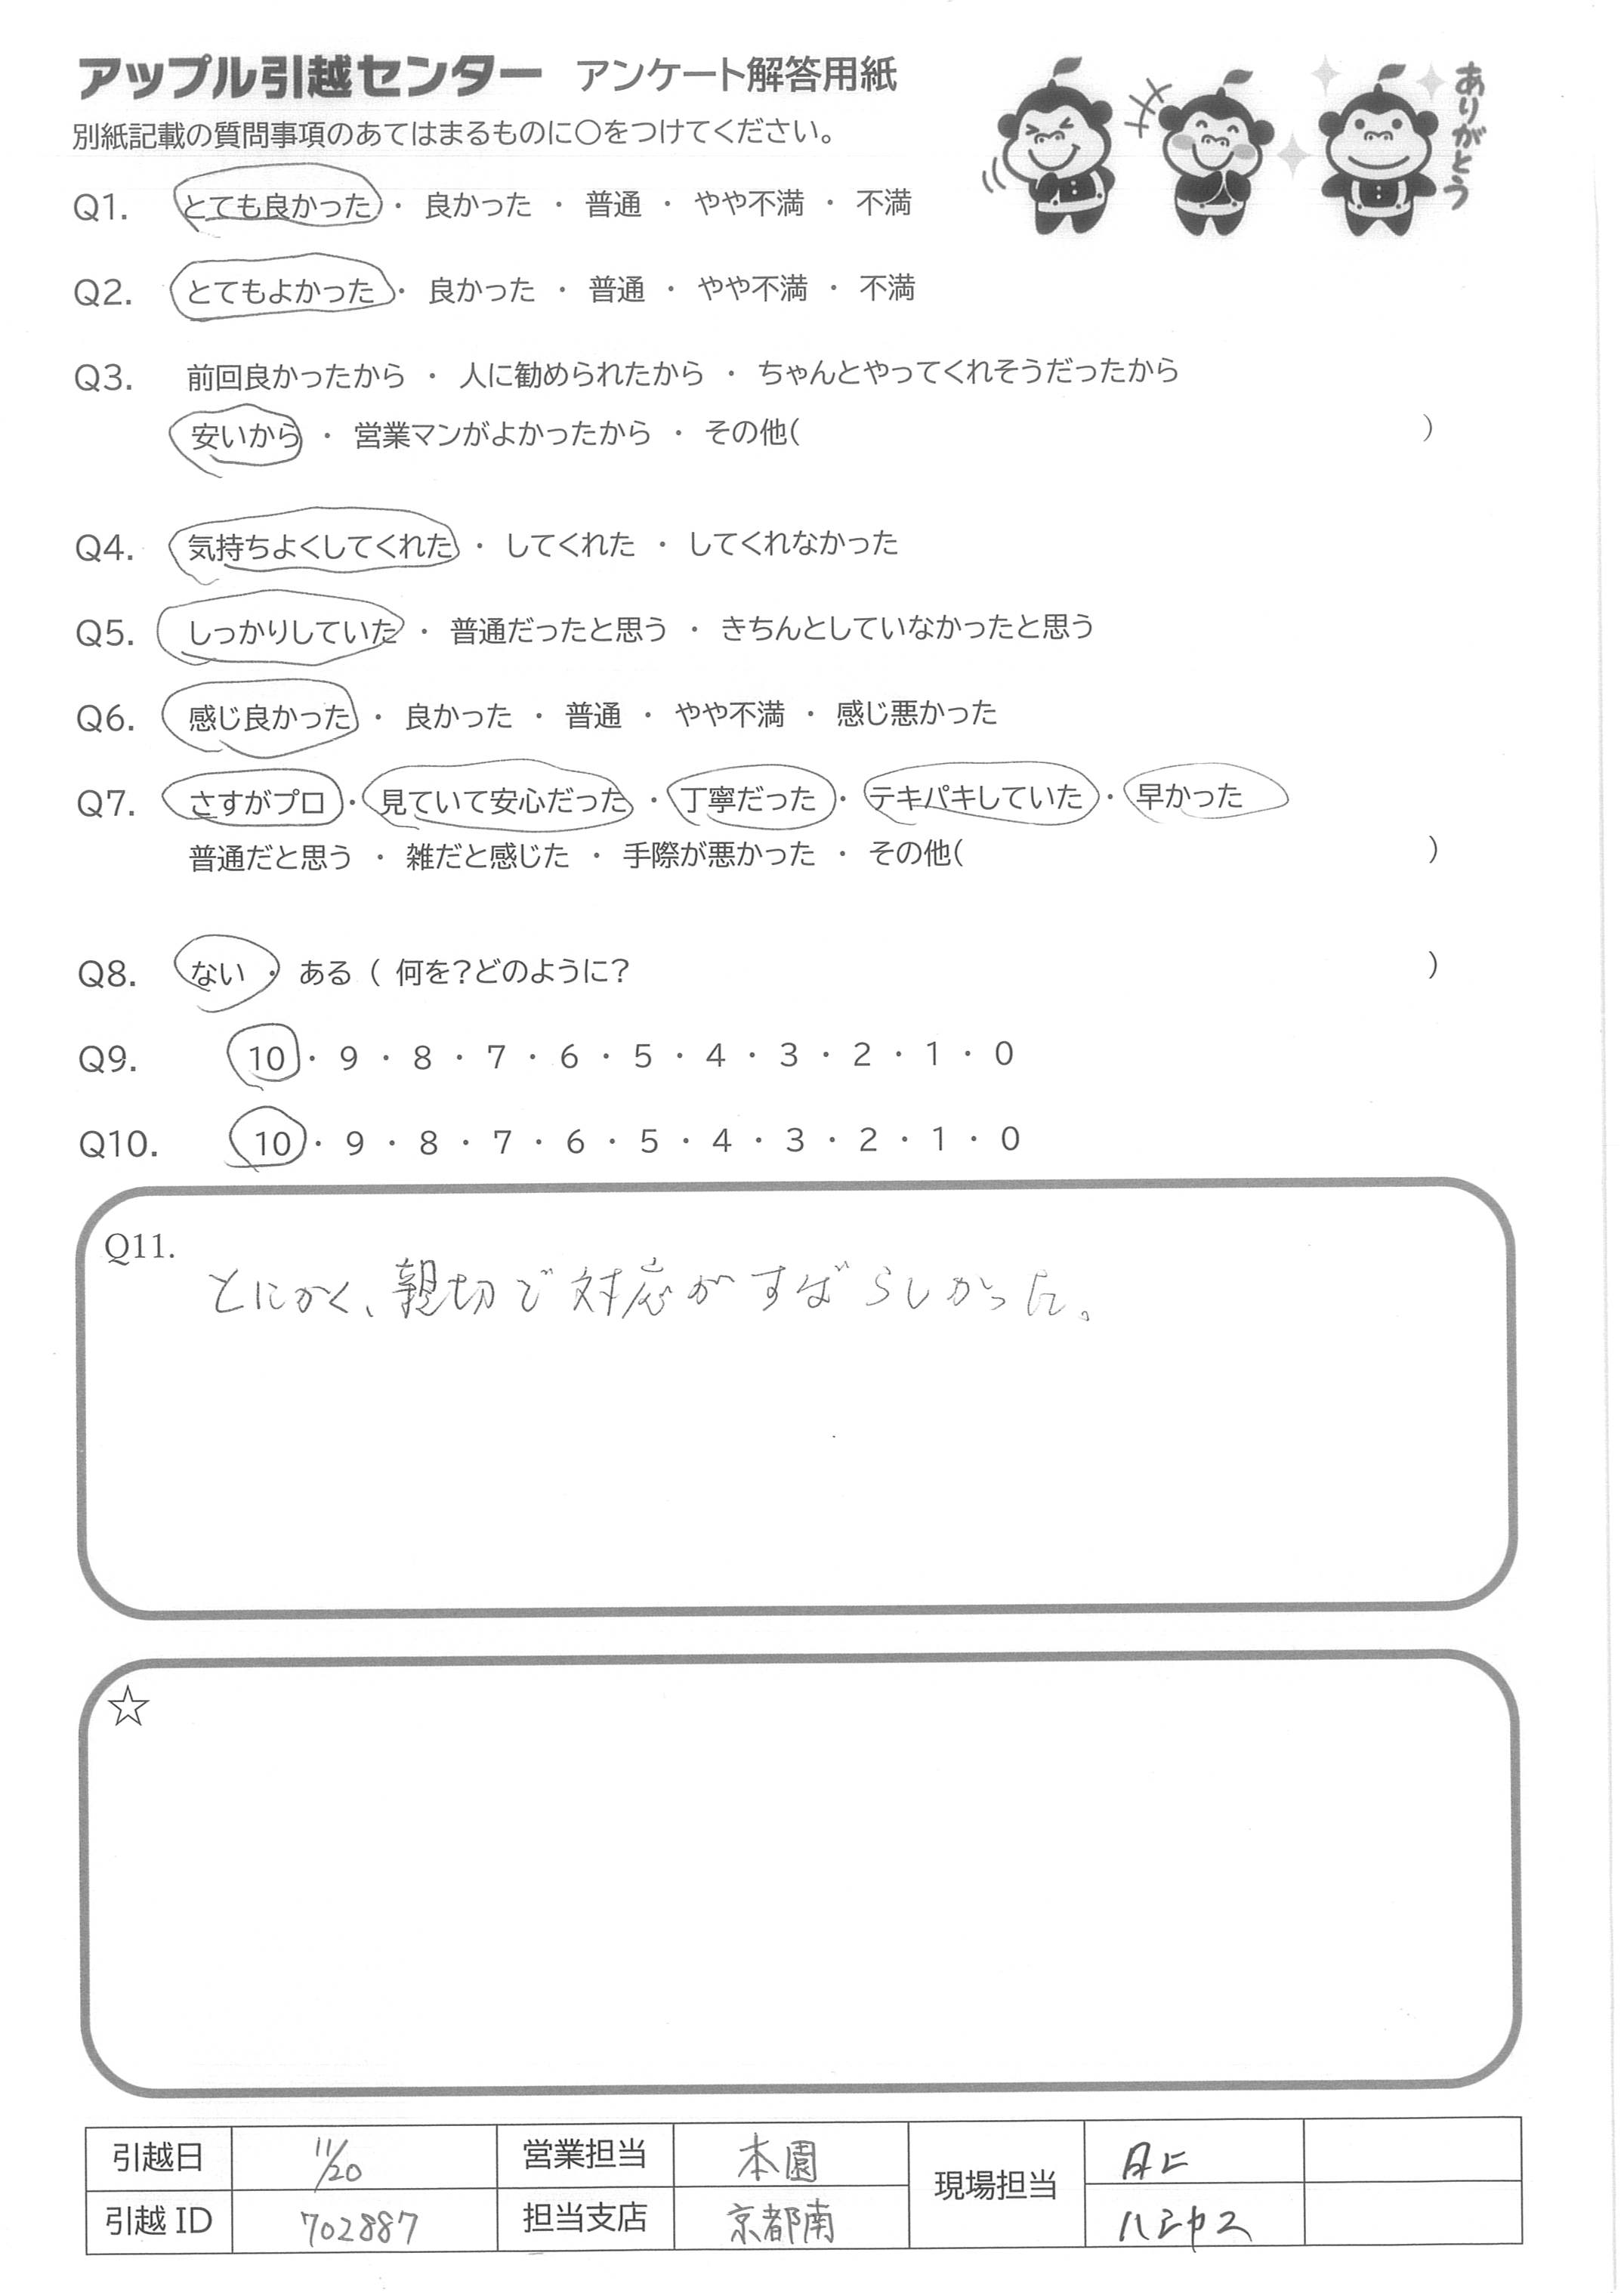 アップル引越センター アンケート解答用紙
別紙記載の質問事項のあてはまるものに○をつけてください。
ありがとう
Q1. とても良かった ・ 良かった ・ 普通 ・ やや不満 ・ 不満
Q2. とてもよかった ・ 良かった ・ 普通 ・ やや不満 ・ 不満
Q3. 前回良かったから ・ 人に勧められたから ・ ちゃんとやってくれそうだったから
安いから ・ 営業マンがよかったから ・ その他( )
Q4. 気持ちよくしてくれた ・ してくれた ・ してくれなかった
Q5. しっかりしていた ・ 普通だったと思う ・ きちんとしていなかったと思う
Q6. 感じ良かった ・ 良かった ・ 普通 ・ やや不満 ・ 感じ悪かった
Q7. さすがプロ ・ 見ていて安心だった ・ 丁寧だった ・ テキパキしていた ・ 早かった
普通だと思う ・ 雑だと感じた ・ 手際が悪かった ・ その他( )
Q8. ない ・ ある ( 何を?どのように? )
Q9. 10 ・ 9 ・ 8 ・ 7 ・ 6 ・ 5 ・ 4 ・ 3 ・ 2 ・ 1 ・ 0
Q10. 10 ・ 9 ・ 8 ・ 7 ・ 6 ・ 5 ・ 4 ・ 3 ・ 2 ・ 1 ・ 0
Q11.
とにかく、親切で対応がすばらしかった。
☆
引越日 11/20 営業担当 本園 現場担当
引越ID 702887 担当支店 京都南